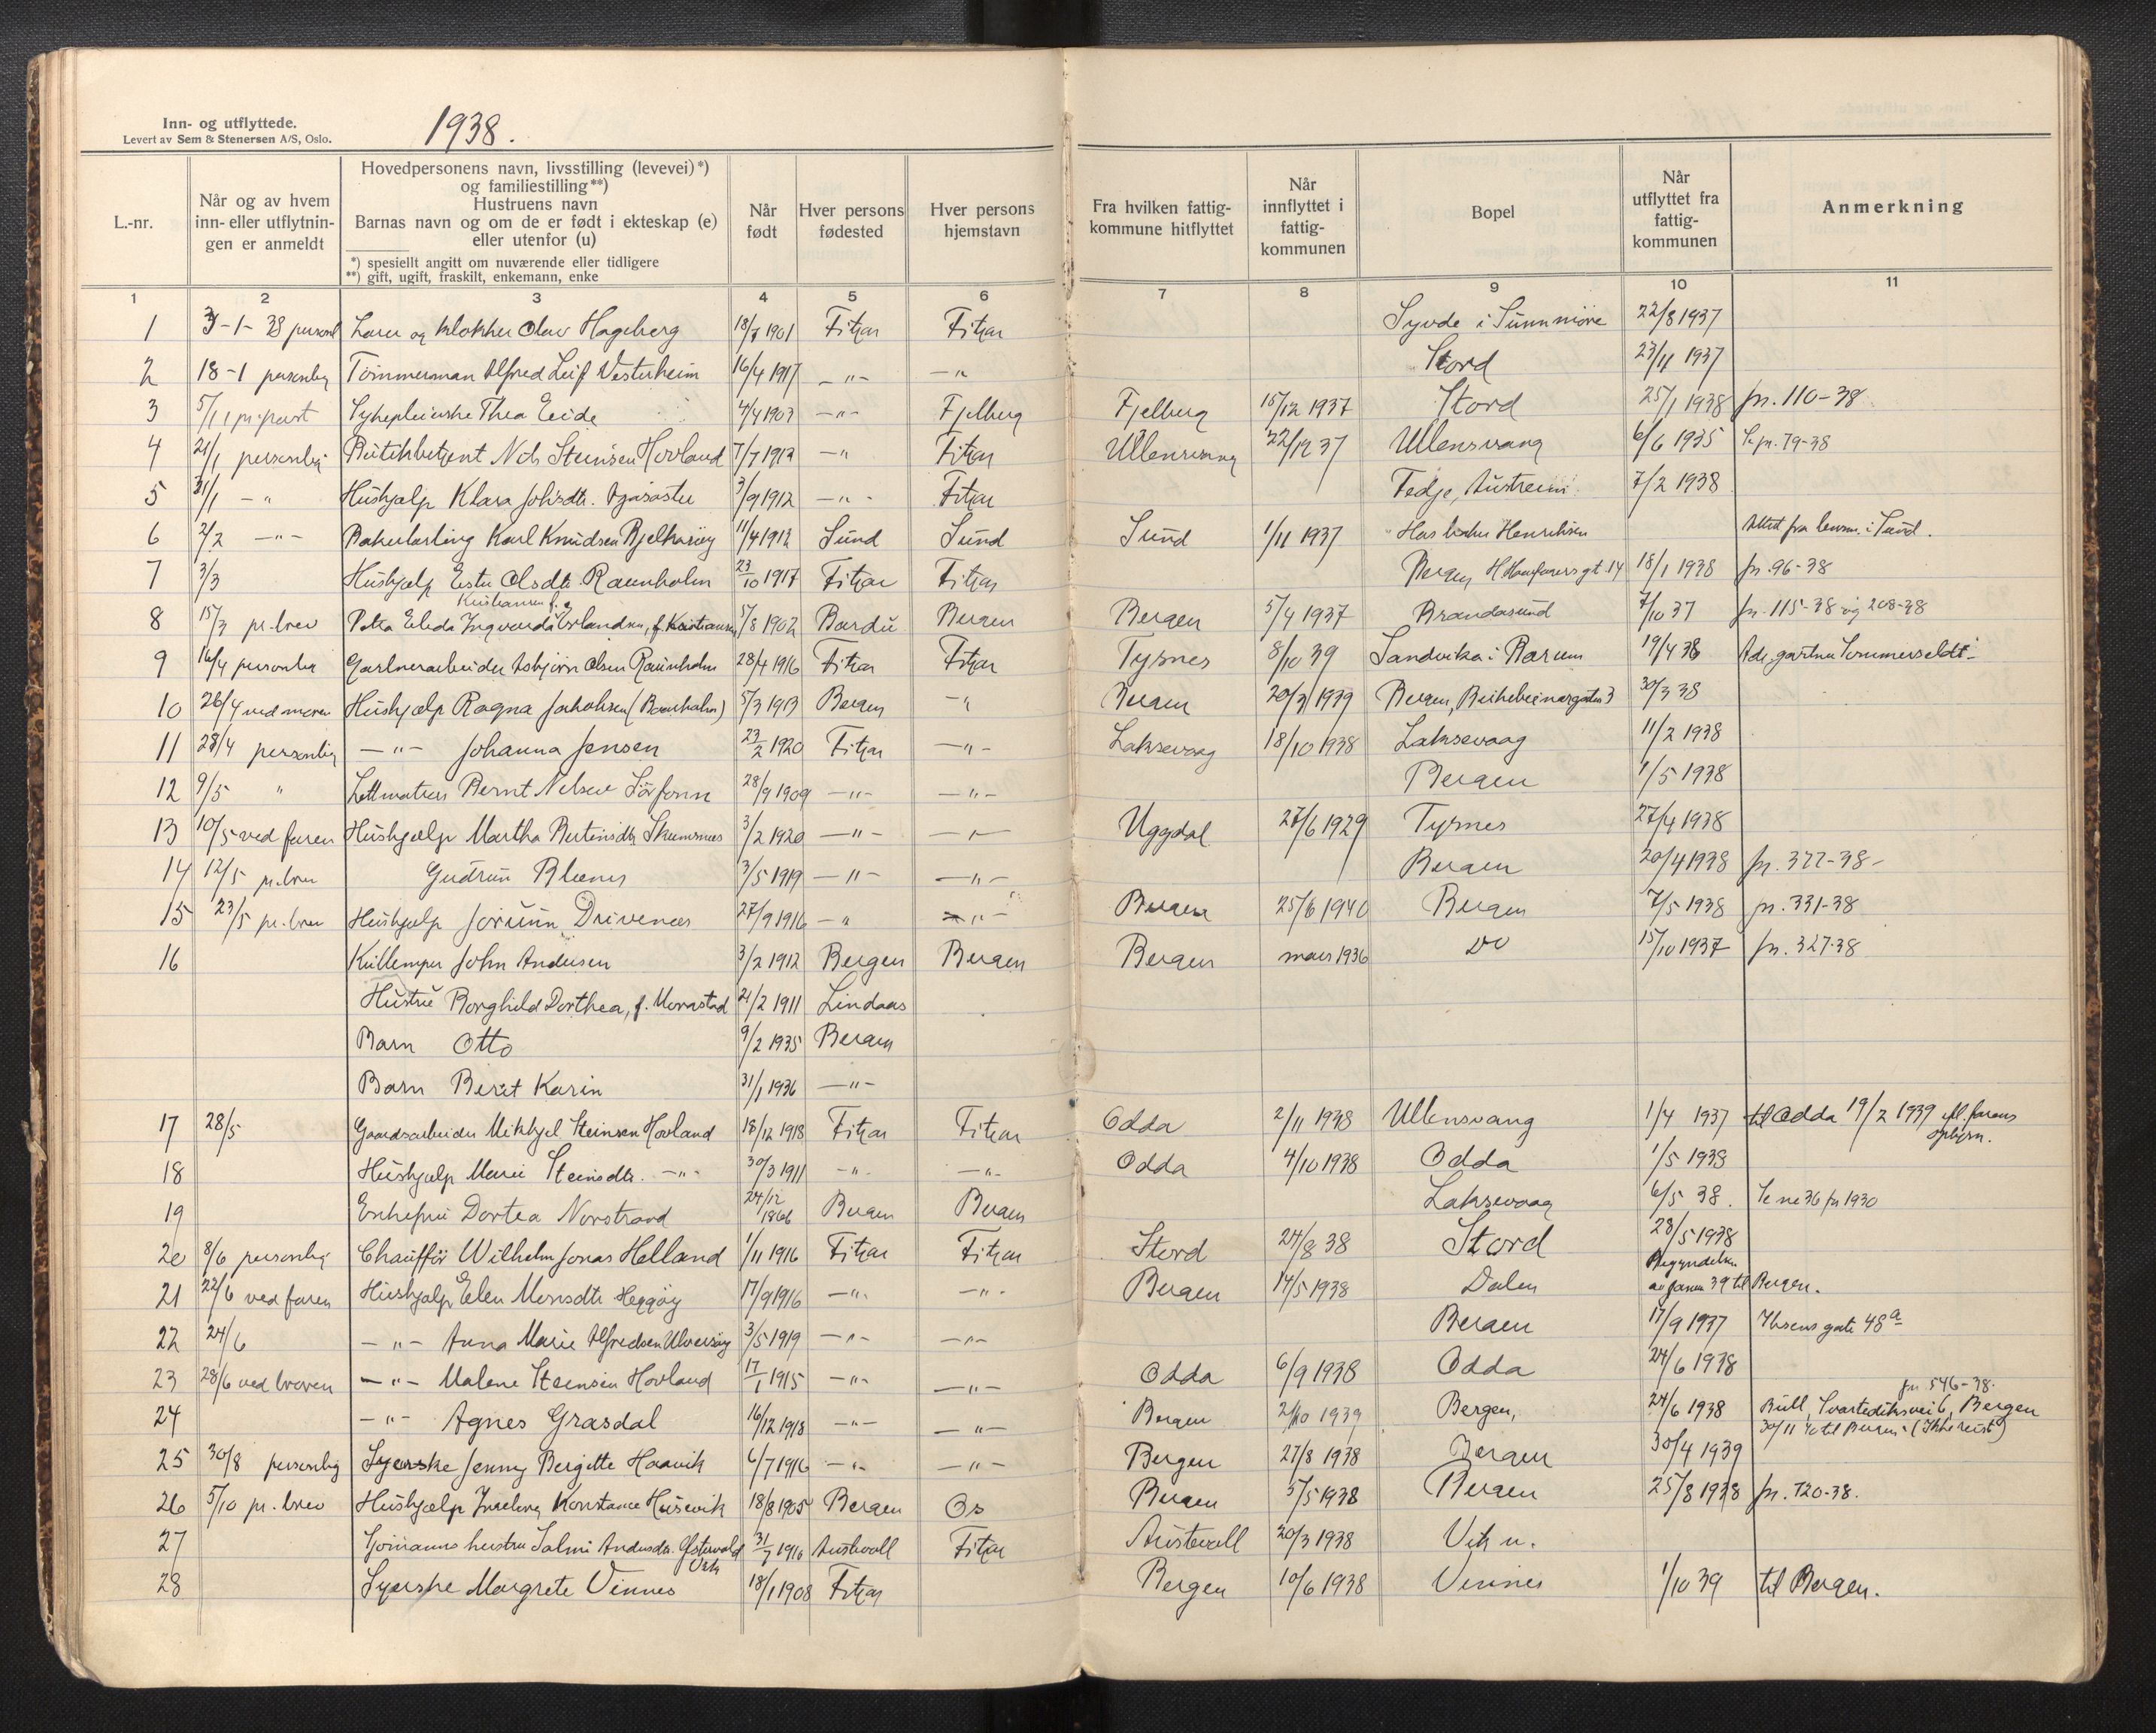 Inn- og utflyttede.
Levert av Sem & Stenersen A/S, Oslo.
1938.
L.-nr.
Når og av hvem inn- eller utflytningen er anmeldt
Hovedpersonens navn, livsstilling (levevei)*) og familiestilling**)
Hustruens navn
Barnas navn og om de er født i ekteskap (e) eller utenfor (u)
*) spesiellt angitt om nuværende eller tidligere
**) gift, ugift, fraskilt, enkemann, enke
Når født
Hver persons fødested
Hver persons hjemstavn
Fra hvilken fattigkommune hitflyttet
Når innflyttet i fattigkommunen
Bopel
Når utflyttet fra fattigkommunen
Anmerkning
1 2 3 4 5 6 7 8 9 10 11
1 3-1-38 personl Lærer og klokker Olav Hageberg 18/7 1901 Fitjar Fitjar Syvde i Sunnmöre 22/8 1937
2 18-1 personlig Tömmerman Alfred Leif Vesterheim 16/4 1917 -"- -"- Stord 23/11 1937
3 5/1 pr. post Sykepleierske Thea Eeide 4/4 1903 -"- Fjelberg Fjelberg 15/12 1937 Stord 25/1 1938 jn. 110-38
4 21/1 personlig Butikkbetjent Nils Steinsen Hovland 7/7 1912 -"- Fitjar Ullensvang 22/12 37 Ullensvang 6/6 1935 Se jn. 79-38
5 31/1 -"- Hushjælp Klara Johsdtr. 3/9 1912 -"- Fitjar Fedje, Austreim 7/2 1938
6 2/2 -"- Bakerlærling Karl Knudsen Bjelkaröy 11/4 1912 Sund Sund Sund 1/11 1937 Hos baker Henriksen Attest fra lensm. i Sund.
7 3/3 Hushjælp Ester Olsdtr. Raunholm 23/10 1917 Fitjar Fitjar Bergen, gt. 14 18/1 1938 jn. 96-38
8 15/3 pr. brev Petra Elida Ingvarda Erlandsen, f. Kristiansen 5/8 1902 Bardu Bergen Bergen 5/4 1937 Brandasund 7/10 37 jn. 115-38 og 208-38
9 16/4 personlig Gartnerarbeider Asbjörn Olsen Raunholm 28/4 1916 Fitjar Fitjar Tysnes 8/10 39 Sandvika i Bærum 19/4 38 Adr. gartner
10 26/4 ved moren Hushjælp Ragna Jakobsen (Raunholm) 5/3 1913 Bergen -"- Bergen 20/3 1939 Bergen, 3 30/3 38
11 28/4 personlig -"- Johanna Jensen 23/2 1920 Fitjar -"- Laksevaag 18/10 1938 Laksevaag 11/2 1938
12 9/5 " Lettmatros Bernt Nilsen Sörfonn 28/9 1909 -"- -"- Bergen 1/5 1938
13 10/5 ved faren Hushjælp Martha Bertinsdtr Skumsnes 3/2 1920 -"- -"- Uggdal 27/6 1929 Tysnes 27/4 1938
14 12/5 pr. brev Gudrun Blænes 3/5 1919 -"- -"- Bergen 20/4 1938 jn. 322-38-
15 23/5 pr. brev Hushjælp Jorunn Drivenes 27/9 1916 -"- -"- Bergen 25/6 1940 Bergen 7/5 1938 jn. 331-38
16 Kullemper John Andersen 3/2 1912 Bergen Bergen Bergen mars 1936 Do 15/10 1937 jn. 327-38
Hustru Borghild Dorthea, f. Monstad 21/2 1911 Lindaas
Barn Otto 9/2 1935 Bergen
Barn Berit Karin 31/1 1936 -"-
17 28/5 Gaardsarbeider Mikkjel Steinsen Hovland 18/12 1918 Fitjar Fitjar Odda 2/11 1938 Ullensvang 1/4 1937 til Odda 19/2 1939 efl. farens
18 Hushjælp Marie Steinsdtr. -"- 30/3 1911 -"- -"- Odda 4/10 1938 Odda 1/5 1938
19 Enkefru Dortea Norstrand 24/12 1866 Bergen Bergen Laksevaag 6/5 38. Se nr 36 for 1930
20 8/6 personlig Chaufför Wilhelm Jonas Helland 1/11 1916 Fitjar Fitjar Stord 24/8 38 Stord 28/5 1938
21 22/6 ved faren Hushjælp Elen Monsdtr Heggöy 17/9 1916 -"- -"- Bergen 14/5 1938 Dalen Begyndelsen av januar 39 til Bergen.
22 24/6 -"- Anna Marie Alfredsen Ulversöy 3/5 1919 -"- -"- Bergen 17/9 1937 Ibsens gate 48a
23 28/6 ved broren -"- Malene Steinsen Hovland 17/1 1915 -"- -"- Odda 6/9 1938 Odda 24/6 1938
jn 546-38.
24 -"- Agnes Grasdal 16/12 1918 -"- -"- Bergen 2/10 1939 Bergen, 24/6 1938 Bull, Svartediksvei 6, Bergen
30/11 til Bergen (Ikke reist)
25 30/8 personlig Syerske Jenny Bergitte Haavik 6/7 1916 -"- -"- Bergen 27/8 1938 Bergen 30/4 1939
26 5/10 pr. brev Hushjælp Ingeborg Konstance Husevik 18/8 1905 Bergen Os Bergen 5/5 1938 Bergen 25/8 1938 jn. 720-38.
27 Sjömanns hustru Salmi Andersdtr. Östervold Vik 31/7 1916 Austevoll Fitjar Austevoll 20/3 1938 Vik u.
28 Syerske Margrete Vinnes 18/1 1908 Fitjar Bergen 10/6 1938 Vinnes 1/10 39 til Bergen.